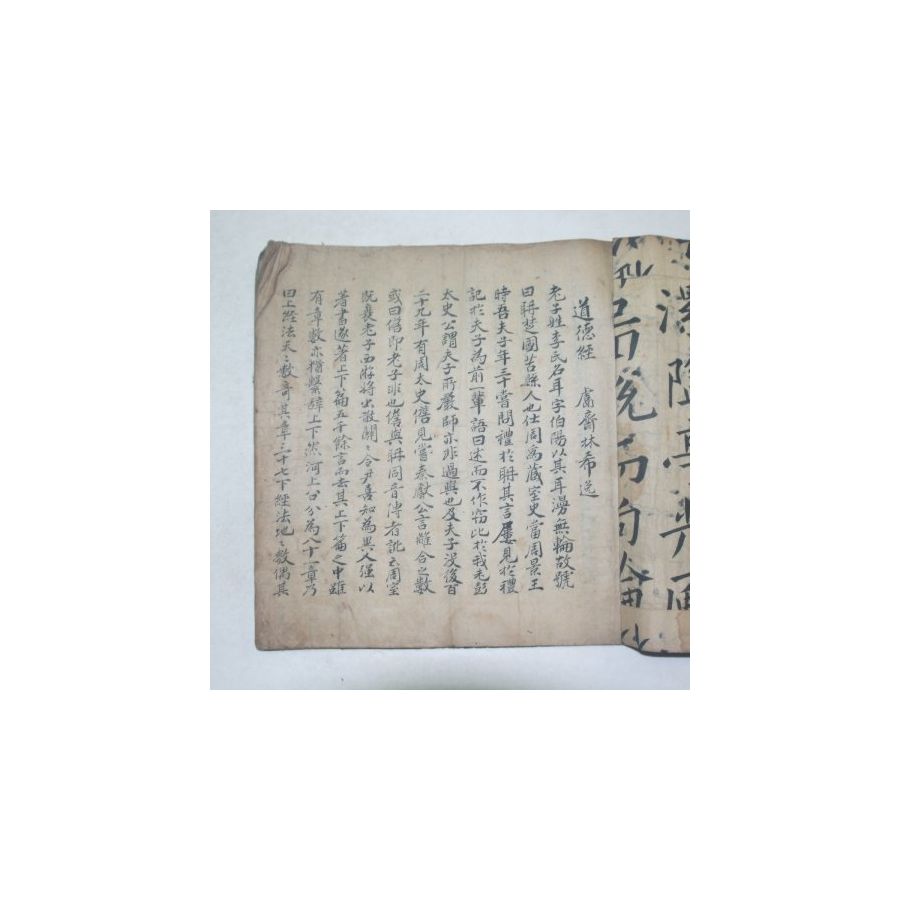 道德經 鬳齋林希逸
老子姓李氏名耳字伯陽以其耳漫無輪故號
曰聃楚國苦縣人也仕周為藏室史當周景王
時吾夫子年三十嘗問禮於聃其言屢見於禮
記於夫子為前一輩語曰述而不作竊比於我老彭
太史公謂夫子所嚴師亦非過與也及夫子沒後百
二十九年有周太史儋見嘗秦獻公言離合之數
或曰儋即老子非也儋與聃同音傳者訛云周室
既衰老子西游將出散關〻令尹喜知為異人强以
著書遂著上下篇五千餘言而去其上下篇之中雖
有章數亦猶繫辭上下然河上公分為八十一章乃
曰上經法天〻數奇其章三十七下經法地〻數偶其